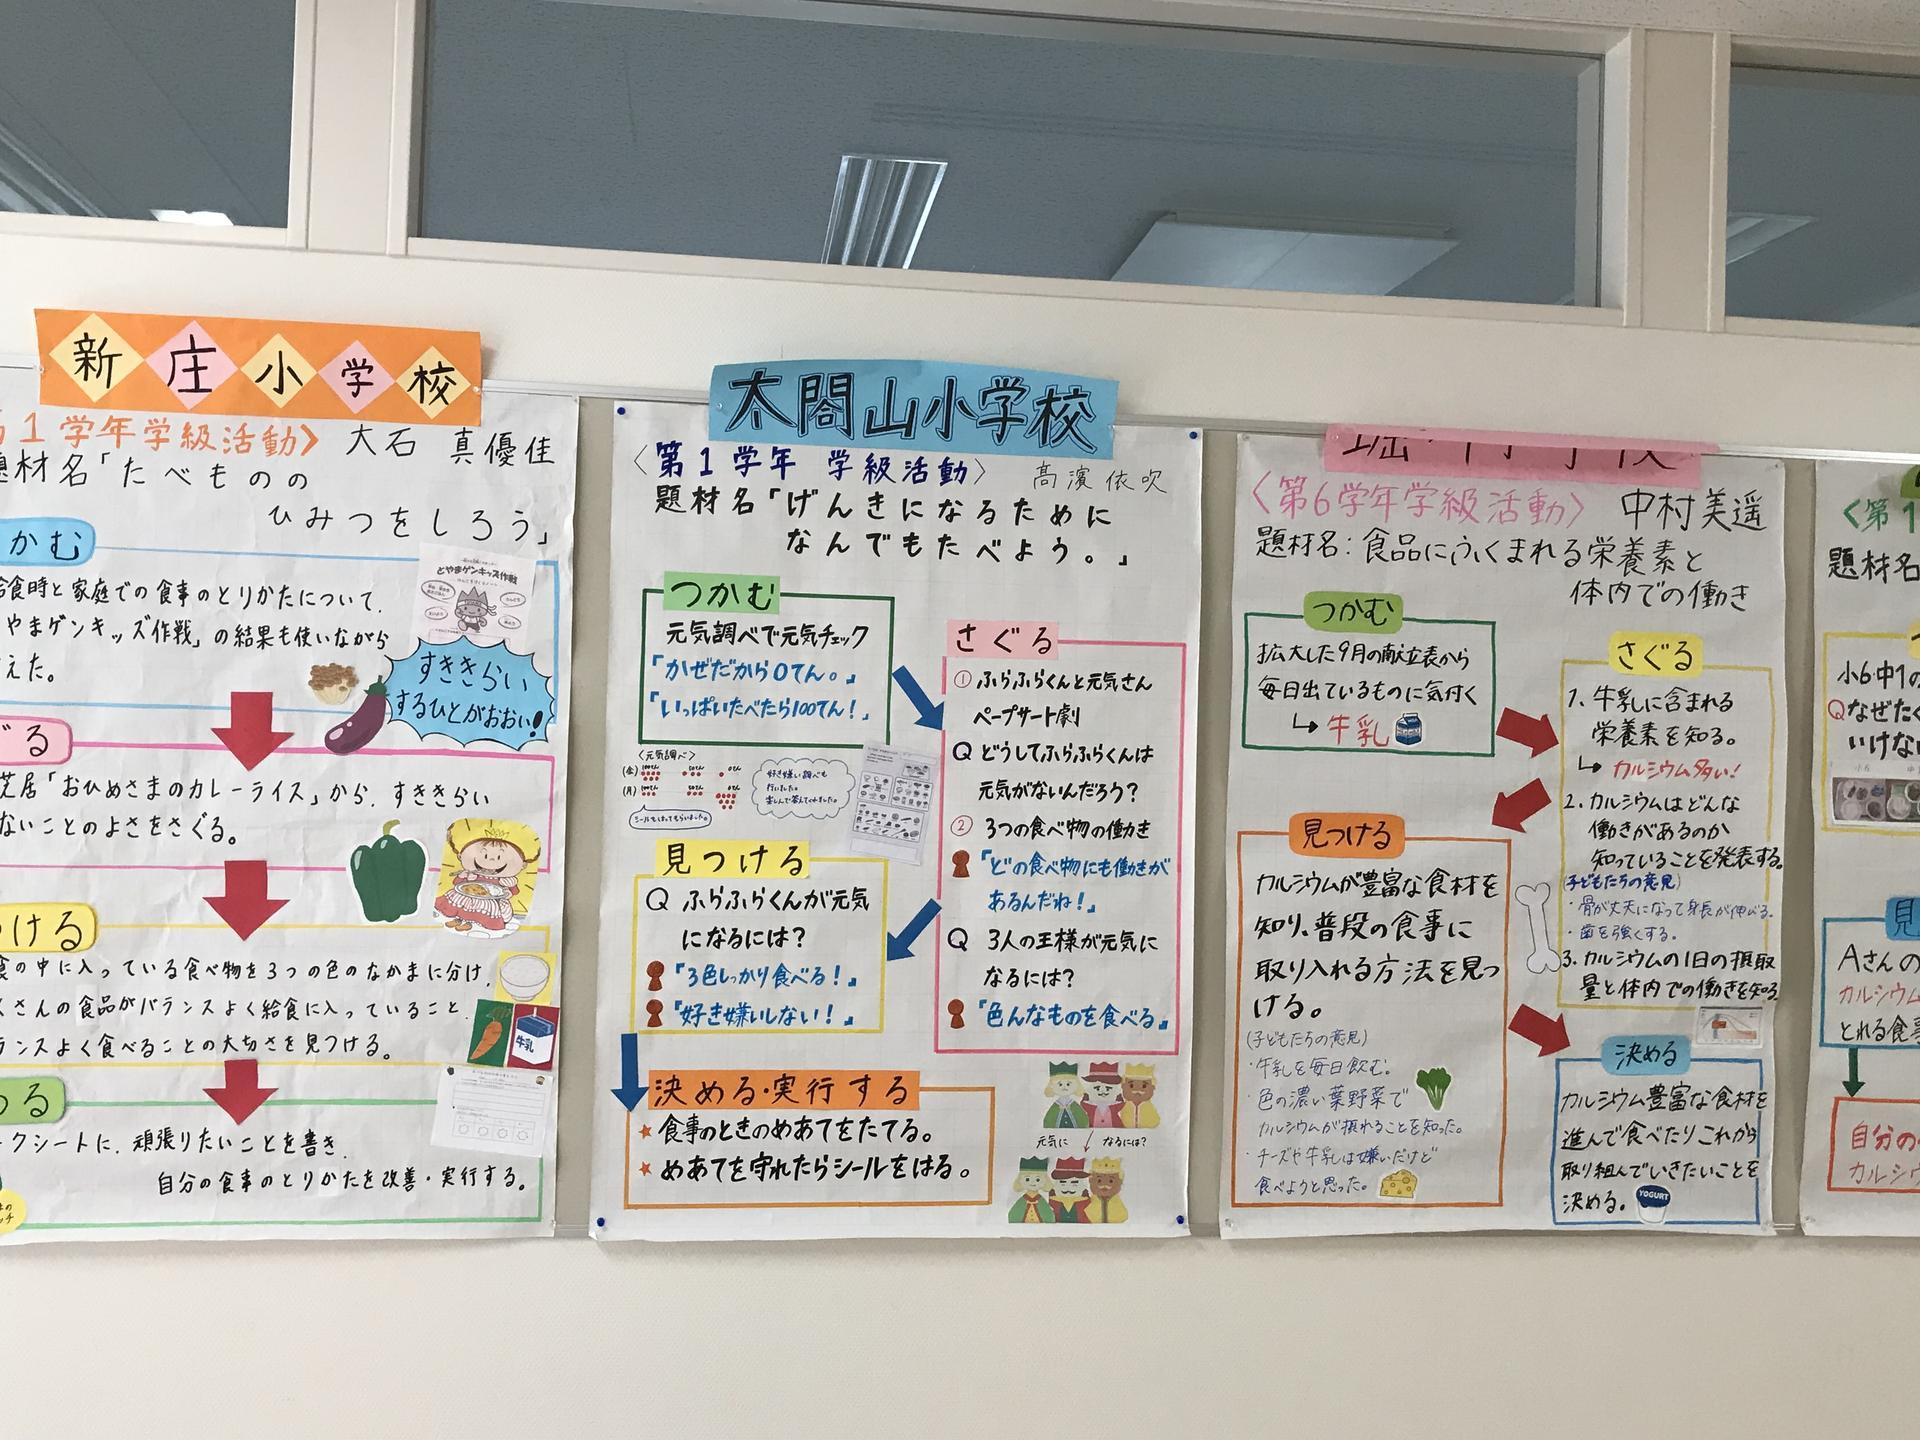 新庄小学校
第1学年学級活動〉 大石 真優佳
題材名「たべものの
ひみつをしろう」
かむ
給食時と家庭での食事のとりかたについて、
やまゲンキッズ作戦」の結果も使いながら
えた。
とやまゲンキッズ作戦
すききらい
するひとがおおい!
ぐる
芝居「おひめさまのカレーライス」から、すききらい
ないことのよさをさぐる。
つける
食の中に入っている食べ物を3つの色のなかまに分け、
くさんの食品がバランスよく給食に入っていること、
ランスよく食べることの大切さを見つける。
牛乳
める
ークシートに、頑張りたいことを書き、
自分の食事のとりかたを改善・実行する。
太閤山小学校
〈第1学年 学級活動〉 髙濱 依吹
題材名「げんきになるために
なんでもたべよう。」
つかむ
元気調べで元気チェック
「かぜだから0てん。」
「いっぱいたべたら100てん!」
〈元気調べ〉
(金) 100てん 50てん 0てん
(月) 100てん 50てん 0てん
シールをはってもらいました。
好き嫌い調べも
行いました。
楽しんで答えてくれました。
さぐる
① ふらふらくんと元気さん
ペープサート劇
Q どうしてふらふらくんは
元気がないんだろう?
② 3つの食べ物の働き
「どの食べ物にも働きが
あるんだね!」
Q 3人の王様が元気に
なるには?
「色んなものを食べる」
見つける
Q ふらふらくんが元気
になるには?
「3色しっかり食べる!」
「好き嫌いしない!」
決める・実行する
★ 食事のときのめあてをたてる。
★ めあてを守れたらシールをはる。
元気に なるには?
〈第6学年学級活動〉 中村美遥
題材名:食品にふくまれる栄養素と
体内での働き
つかむ
拡大した9月の献立表から
毎日出ているものに気付く
↳ 牛乳
さぐる
1. 牛乳に含まれる
栄養素を知る。
↳ カルシウム多い!
2. カルシウムはどんな
働きがあるのか
知っていることを発表する。
(子どもたちの意見)
・骨が丈夫になって身長が伸びる。
・歯を強くする。
3. カルシウムの1日の摂取
量と体内での働きを知る。
見つける
カルシウムが豊富な食材を
知り、普段の食事に
取り入れる方法を見つ
ける。
(子どもたちの意見)
・牛乳を毎日飲む。
・色の濃い葉野菜で
カルシウムが摂れることを知った。
・チーズや牛乳は嫌いだけど
食べようと思った。
決める
カルシウム豊富な食材を
進んで食べたりこれから
取り組んでいきたいことを
決める。
YOGURT
〈第1
題材名
小6・中1の
Qなぜたく
いけない
見
Aさんの
カルシウム
とれる食事
自分の
カルシウ